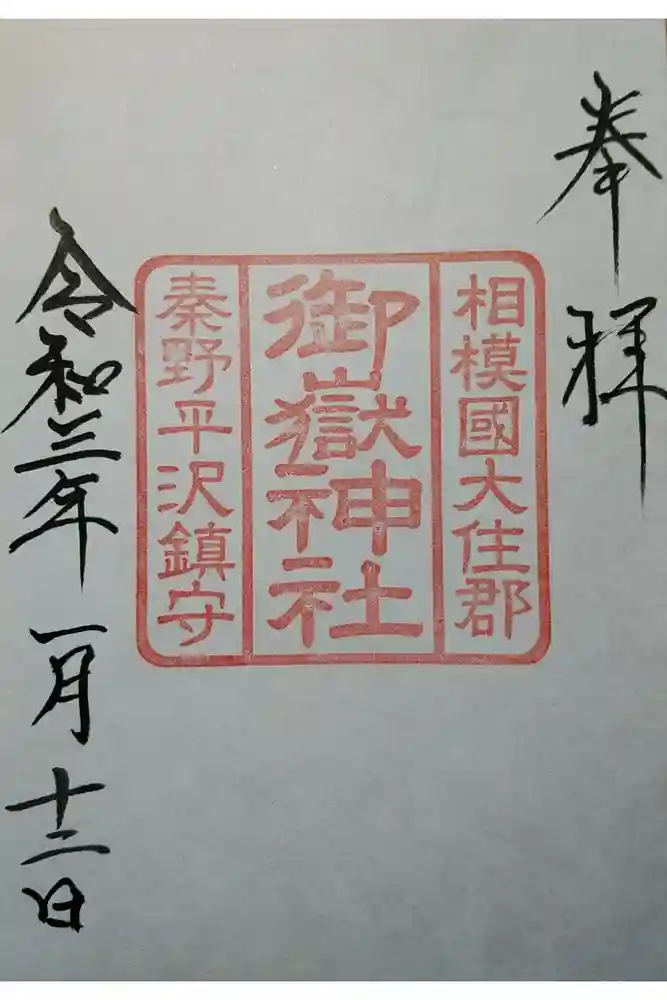 奉拜
相模國大住郡
御嶽神社
秦野平沢鎮守
令和三年一月十二日